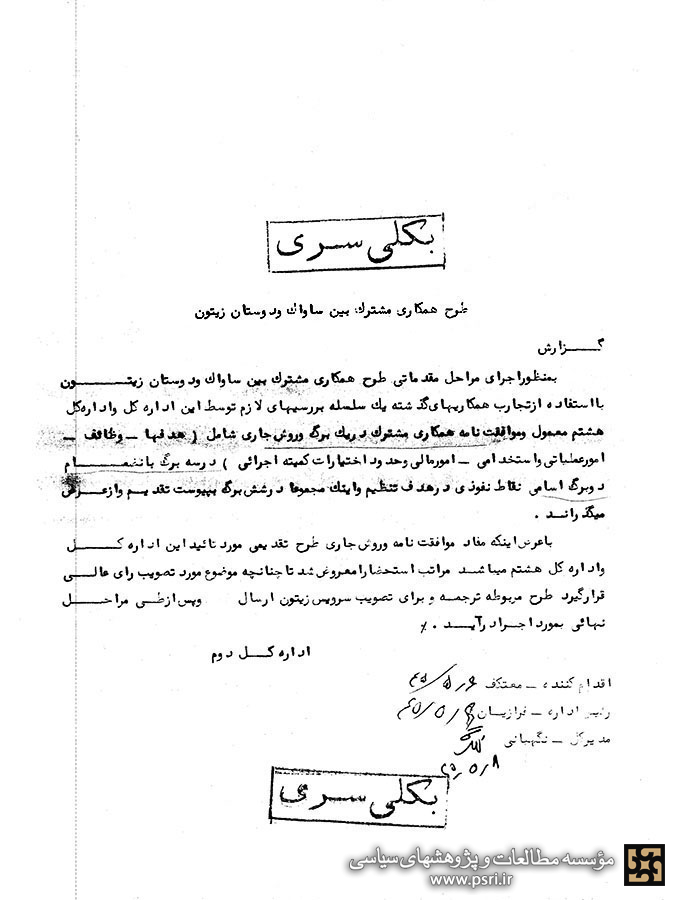 بکلی سری
طرح همکاری مشترك بین ساواك ودوستان زیتون
گزارش
بمنظوراجرای مراحل مقدماتی طرح همکاری مشترك بین ساواك ودوستان زیتون
بااستفاده ازتجارب همکاریهای گذشته یك سلسله بررسیهای لازم توسط این اداره کل واداره کل
هشتم معمول وموافقت نامه همکاری مشترك دریك برگ وروش جاری شامل ( هدفها ــ وظائف ــ
امورعملیاتی واستخدامی ــ امورمالی وحدود اختیارات کمیته اجرائی ) درسه برگ بانضمام
دوبرگ اسامی نقاط نفوذی درهدف تنظیم واینك مجموعا درشش برگ بپیوست تقدیم وازعرض
میگذراند .
باعرض اینکه مفاد موافقت نامه وروش جاری طرح تقدیمی مورد تائید این اداره کل
واداره کل هشتم میباشد مراتب استحضارا معروض شد تا چنانچه موضوع مورد تصویب رای عالی
قرارگیرد طرح مربوطه ترجمه و برای تصویب سرویس زیتون ارسال وپس ازطی مراحل
نهائی بمورد اجراد رآید . ٪
اداره کل دوم
اقدام کننده ــ معتکف ۴۵/۵/۶
رئیس اداره ــ فرازیان ۴۵/۵/
مدیرکل ــ نگهبانی
۴۵/۵/۸
بکلی سری
مؤسسه مطالعات و پژوهشهای سیاسی
www.psri.ir